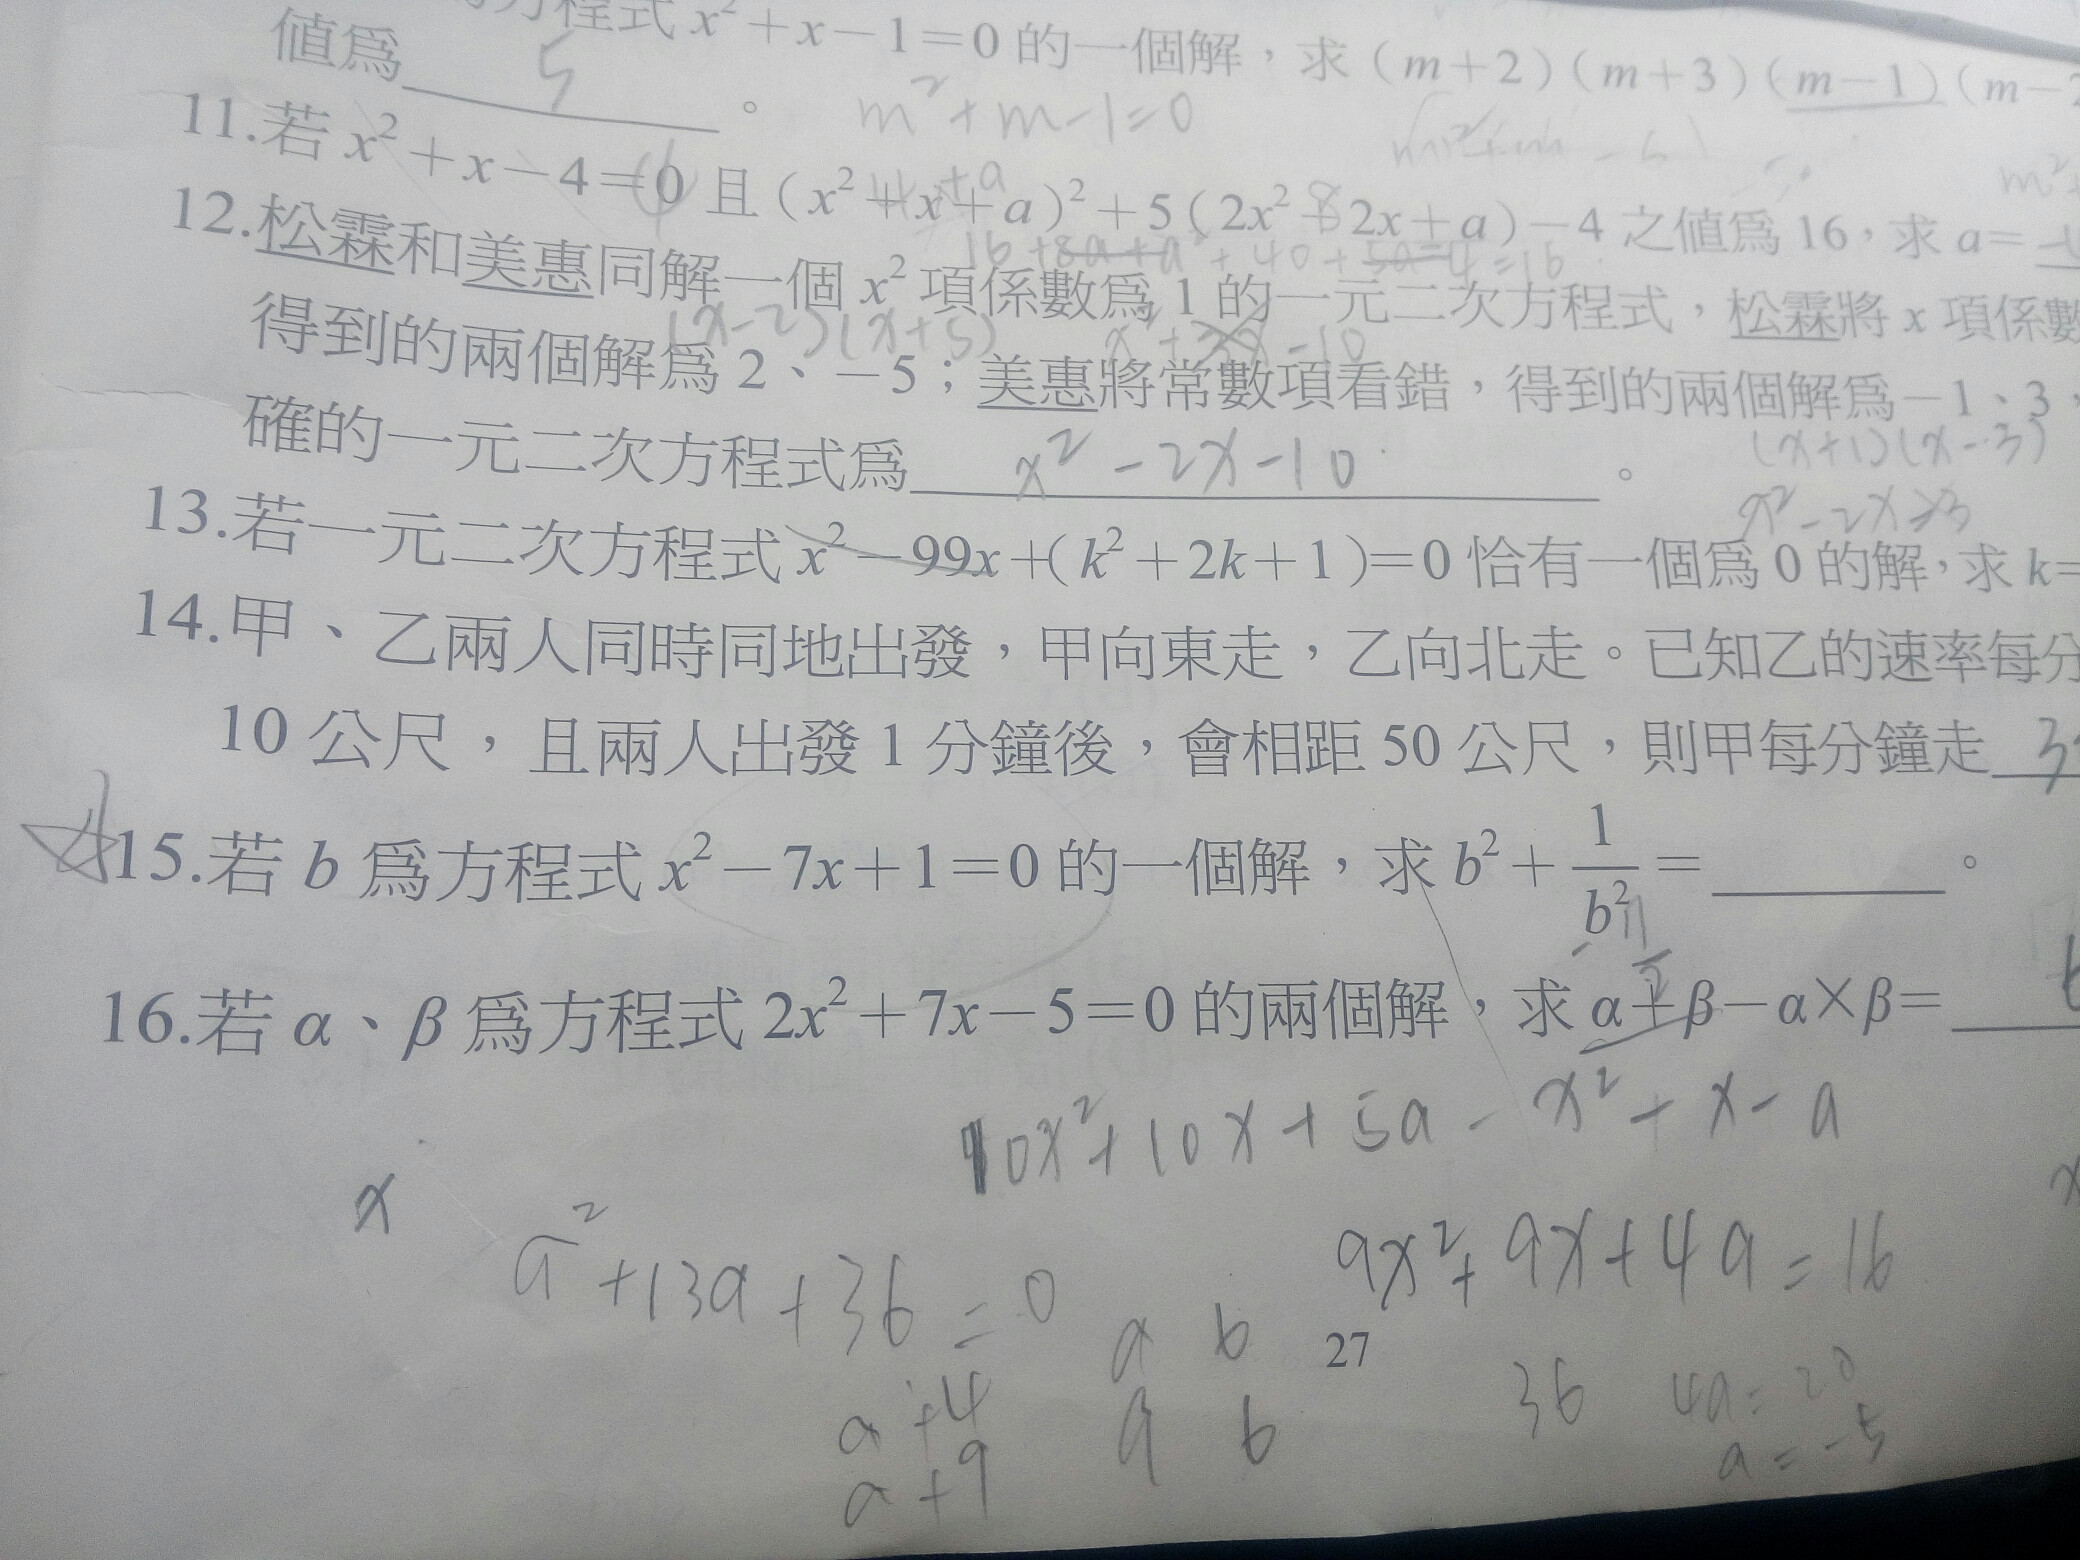 方程式 x²+x−1=0 的一個解，求（m+2）（m+3）（m−1）（m−2
值爲 5 。
m²+m−1=0
11.若 x²+x−4=0 且（x²+x+a）²+5（2x²+2x+a）−4 之值爲 16，求 a=
16+8a+a²+40+5a−4=16
12.松霖和美惠同解一個 x² 項係數爲 1 的一元二次方程式，松霖將 x 項係數
(x−2)(x+5)
得到的兩個解爲 2、−5；美惠將常數項看錯，得到的兩個解爲−1、3，
(x+1)(x−3)
確的一元二次方程式爲 x²−2x−10 。
x²−2x−3
13.若一元二次方程式 x²−99x+(k²+2k+1)=0 恰有一個爲 0 的解，求 k=
14.甲、乙兩人同時同地出發，甲向東走，乙向北走。已知乙的速率每分
10 公尺，且兩人出發 1 分鐘後，會相距 50 公尺，則甲每分鐘走 3
15.若 b 爲方程式 x²−7x+1=0 的一個解，求 b²+1/b²= 。
16.若 α、β 爲方程式 2x²+7x−5=0 的兩個解，求 α+β−α×β=
10x²+10x+5a−x²+x−a
x
a²+13a+36=0
9x²+9x+4a=16
a b
27
a+4
a b
36 4a=20
a+9
a=−5